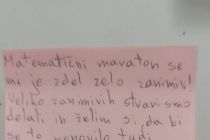 Matematični maraton se
mi je zdel zelo zanimiv!
Veliko zanimivih stvari smo
delali in želim si, da bi
se to ponovilo tudi